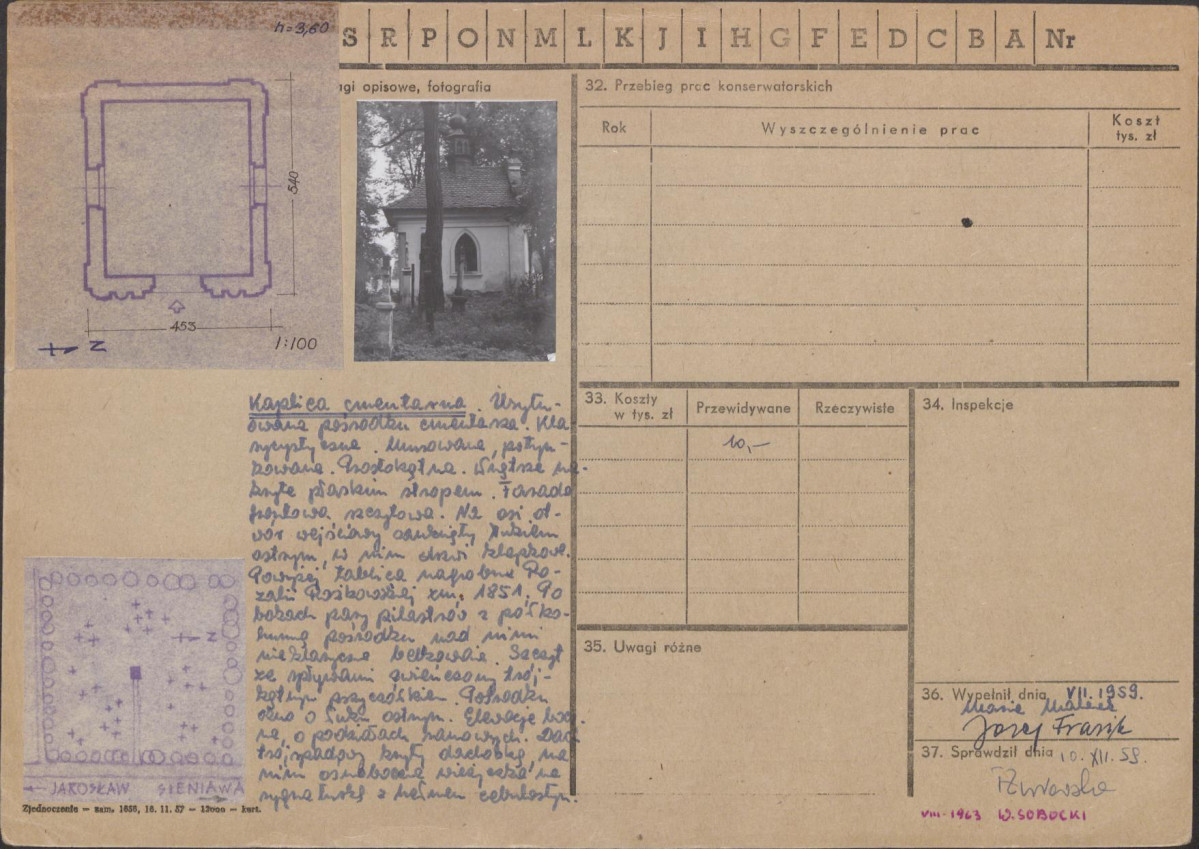 h=3,60
S R P O N M L K J I H G F E D C B A Nr
gi opisowe, fotografia
540
453
N
1:100
Kaplica cmentarna. Usytu-
owana pośrodku cmentarza. Kla
sycystyczna. Murowana, potyn-
kowana. Prostokątna. Wnętrze na-
kryte płaskim stropem. Fasada
frontowa szczytowa. Na osi ot-
wór wejściowy zamknięty łukiem
ostrym, w nim drzwi klepkowe.
Powyżej tablica nagrobna Ro-
zalii zm. 1851. Po
bokach pary pilastrów z półko-
lumną pośrodku nad nimi
belkowanie. Szczyt
ze spływami zwieńczony trój-
kątnym przyczółkiem. Pośrodku
okno o łuku ostrym. Elewacje
o podziałach ramowych. Dach
trójspadowy kryty dachówką, na
nim ośmioboczna wieżyczka na
sygnaturkę z hełmem cebulastym.
N
JAROSŁAW SIENIAWA
Zjednoczenie — zam. 1656, 16. 11. 57 — 12000 — kart.
32. Przebieg prac konserwatorskich
Rok
Wyszczególnienie prac
Koszt
tys. zł
33. Koszty
w tys. zł
Przewidywane
Rzeczywiste
10,–
34. Inspekcje
35. Uwagi różne
36. Wypełnił dnia VII.1959.
Józef Frazik
37. Sprawdził dnia 10.XII.59.
VIII-1963 W.SOBOCKI